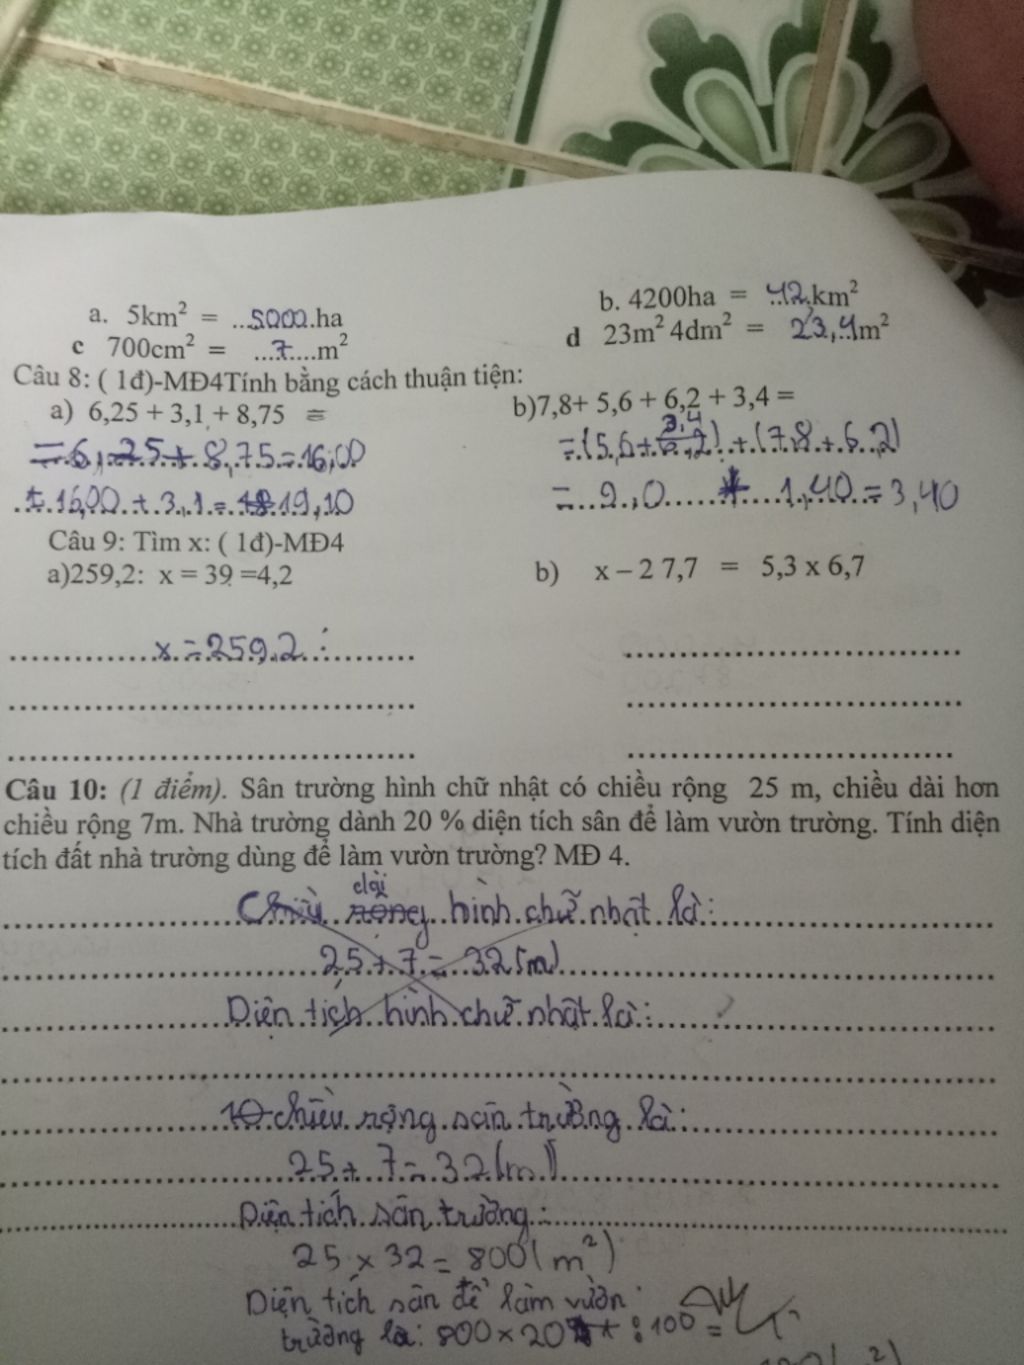 a. 5km² = ...5000.ha
b. 4200ha = 42.km²
c 700cm² = ....7....m²
d 23m² 4dm² = 23,4m²
Câu 8: ( 1đ)-MĐ4Tính bằng cách thuận tiện:
a) 6,25 + 3,1 + 8,75 =
b)7,8+ 5,6 + 6,2 + 3,4 =
= 6,25 + 8,75 = 16,00
= (5,6 + 3,4) + (7,8 + 6,2)
+ 16,00 + 3,1 = 19,10
= 9,0 + 1,40 = 3,40
Câu 9: Tìm x: ( 1đ)-MĐ4
a)259,2: x = 39 =4,2
b) x – 2 7,7 = 5,3 x 6,7
x = 259,2 :
Câu 10: (1 điểm). Sân trường hình chữ nhật có chiều rộng 25 m, chiều dài hơn
chiều rộng 7m. Nhà trường dành 20 % diện tích sân để làm vườn trường. Tính diện
tích đất nhà trường dùng để làm vườn trường? MĐ 4.
Chiều dài hình chữ nhật là:
25 + 7 = 32 (m)
Diện tích hình chữ nhật là:
chiều rộng sân trường là:
25 + 7 = 32 (m)
Diện tích sân trường:
25 x 32 = 800 (m²)
Diện tích sân để làm vườn
trường là: 800 x 20 : 100 =